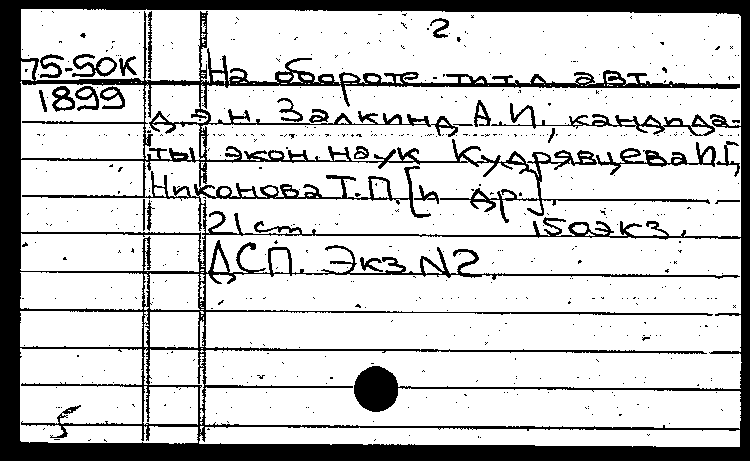 2.
75-50к
1899
На обороте тит.л. авт.:
д.э.н. Залкинд А.И., кандида-
ты экон. наук Кудрявцева И.Г.,
Никонова Т.П. [и др].
21 ст. 150экз.
ДСП. Экз. N2.